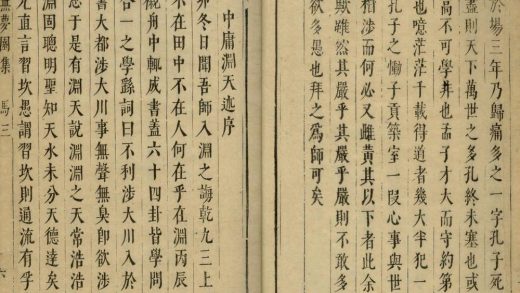 於場三年乃歸痛多之一字孔子死
盡則天下萬世之多孔終未塞也或
高不可學井也孟子才大而守約第
也噫茫茫千載得道者幾大半犯一
孔子之慟子貢築室一叚心事與世
相涉而何必又雌黃其以下者此余
獸雖然其嚴乎其嚴乎嚴則不敢多
欲多愚也拜之為師可矣
中庸淵天序
卯冬日聞吾師入淵之誨乾九三上
不在田中不在人何在乎在淵丙辰
舟中輒書盖六十四卦皆學問
一之學繇詞曰不利涉大川入於
書大都涉大川事無聲無臭卽欲涉
悉于是有淵天說淵淵之天常浩浩
淵固聰明聖知天水未分天德達矣
直言習坎愚謂習坎則過流有孚
無夢園集 馬三 六